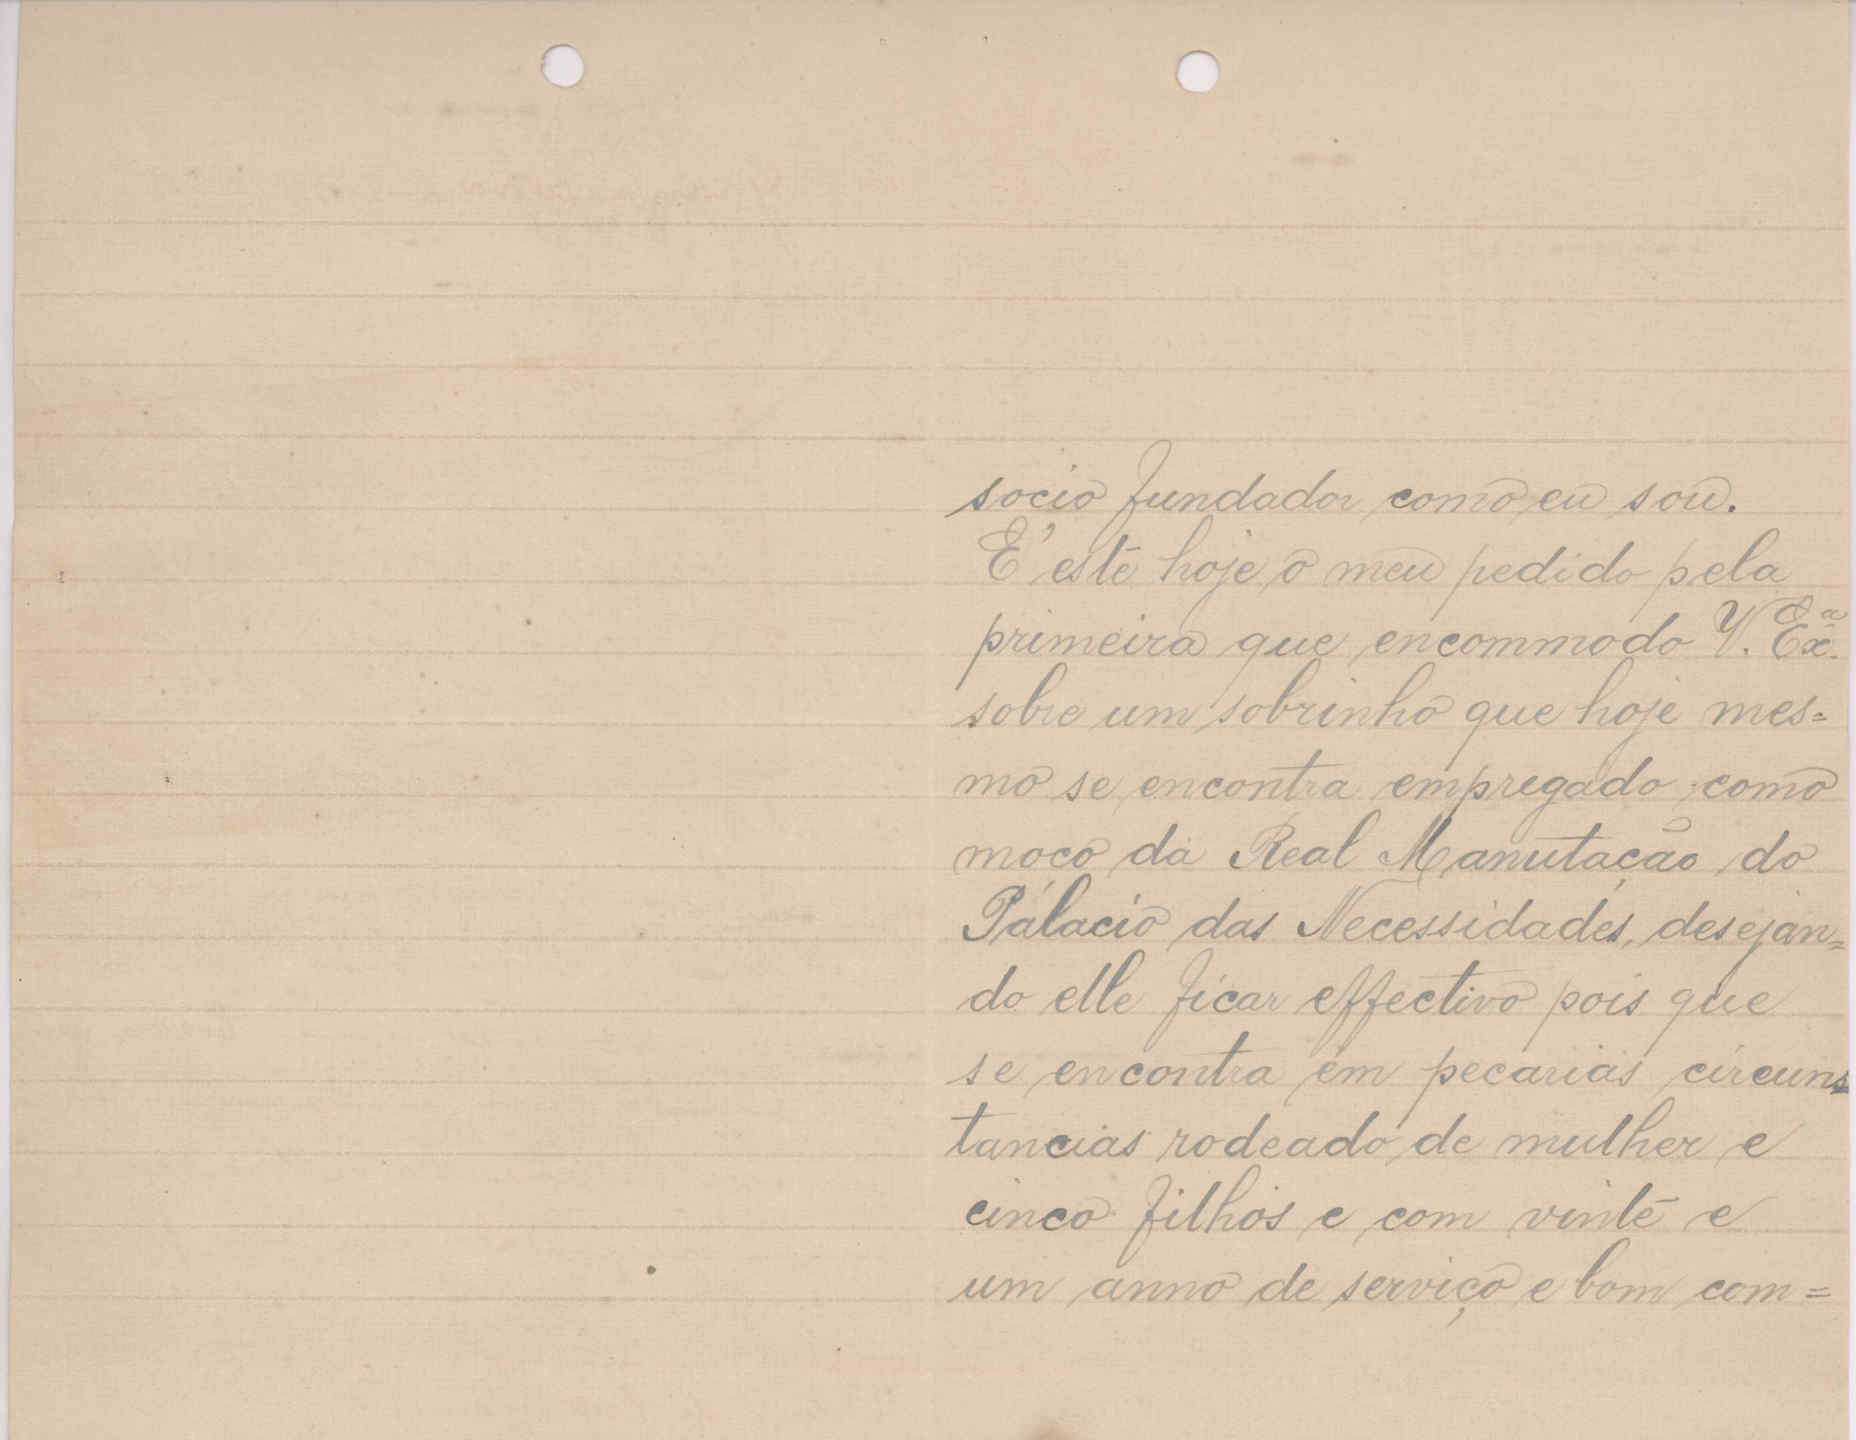 socio fundador como eu sou.
E' este hoje o meu pedido pela
primeira que encommodo V. Exª.
sobre um sobrinho que hoje mes=
mo se encontra empregado como
moco da Real Manutação do
Pálacio das Necessidades, desejan=
do elle ficar effectivo pois que
se encontra em pecarias circuns
tancias rodeado de mulher e
cinco filhos e com vinte e
um anno de serviço e bom com=